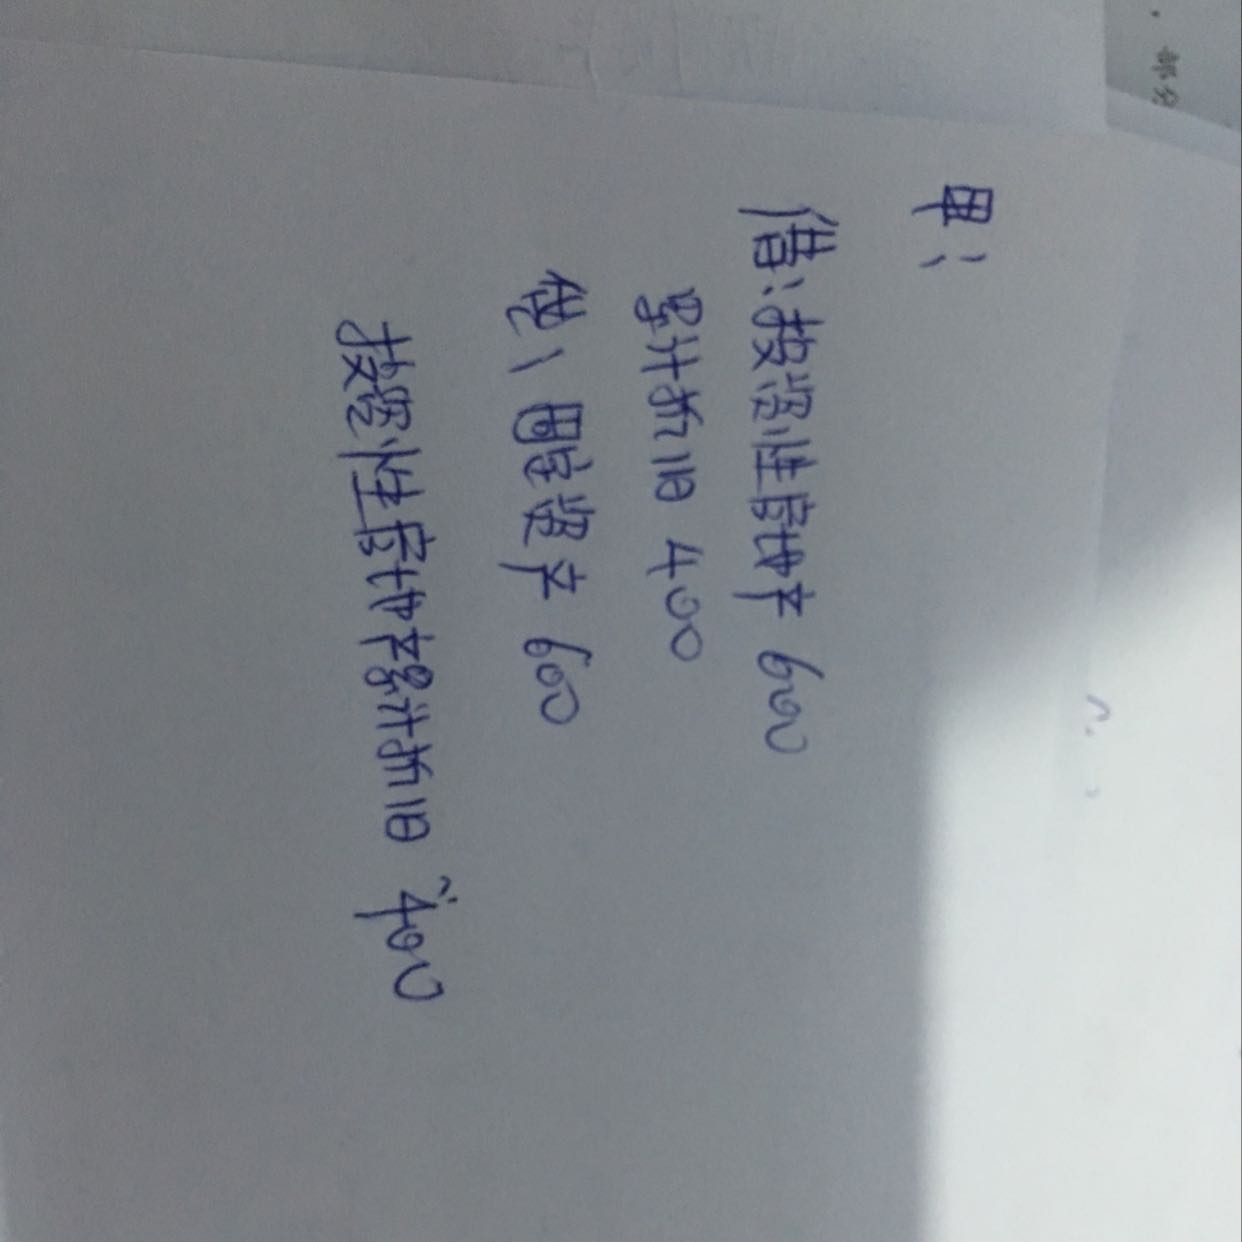 甲：
借：投资性房地产 600
累计折旧 400
贷：固定资产 600
投资性房地产累计折旧 400
部分